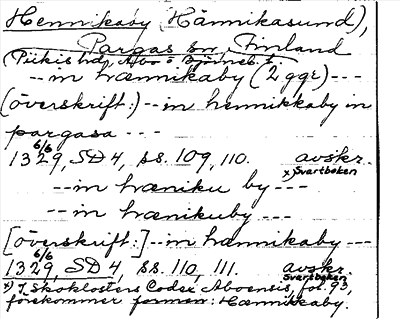 Hennikaby (Hännikasund),
Pargas sn, Finland
(Piikis hd, Åbo o Björneb. l.
-- in hænnikaby (2 ggr) ---
(överskrift:) -- in hennikkaby in
pargasa ---
6/6
1329, SD 4, ss. 109, 110. avskr.
x) Svartboken
-- in hæniku by ---
-- in hænikuby ---
[överskrift:] -- in hænnikaby ---
6/6
1329, SD 4, ss. 110, 111. avskr.
Svartboken
x) I Skoklosters Codex Aboensis, fol. 93,
förekommer formen: Hænnikaby.